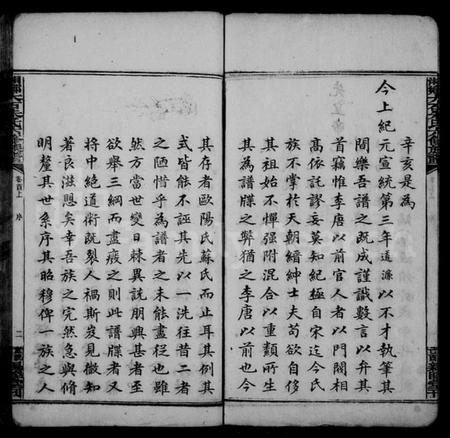 辛亥是為
今上紀元宣統第三年以不才執筆其
間樂吾譜之既成謹識數言以弁其
首竊惟李唐以前官人者以門閥相
高依託謬妄莫知紀極自宋迄今氏
族不掌於天朝縉紳士夫苟欲自侈
其祖始不憚強附混合以重顯所生
其為譜牒之弊猶之李唐以前也今
其存者歐陽氏蘇氏而止耳其例其
式皆能不誣其先以一洗往昔二者
之陋惜乎為譜者之未能盡從也雖
然方當世變日棘異說朋興甚者至
欲舉三綱而盡廢之則此譜牒者又
將中絕道術既裂人禍斯岌見微知
著良滋恐矣幸吾族之完然急與脩
明釐其世系序其昭穆俾一族之人
卷首上 序
二